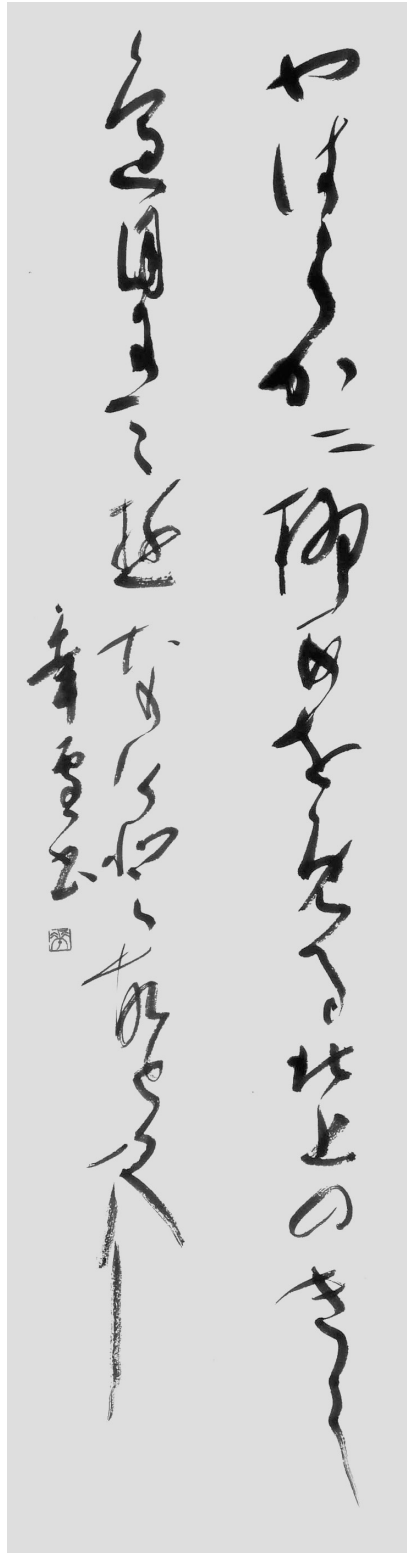 やはらか二柳あをめる北上のきし
邊目に三遊なけとごとくに